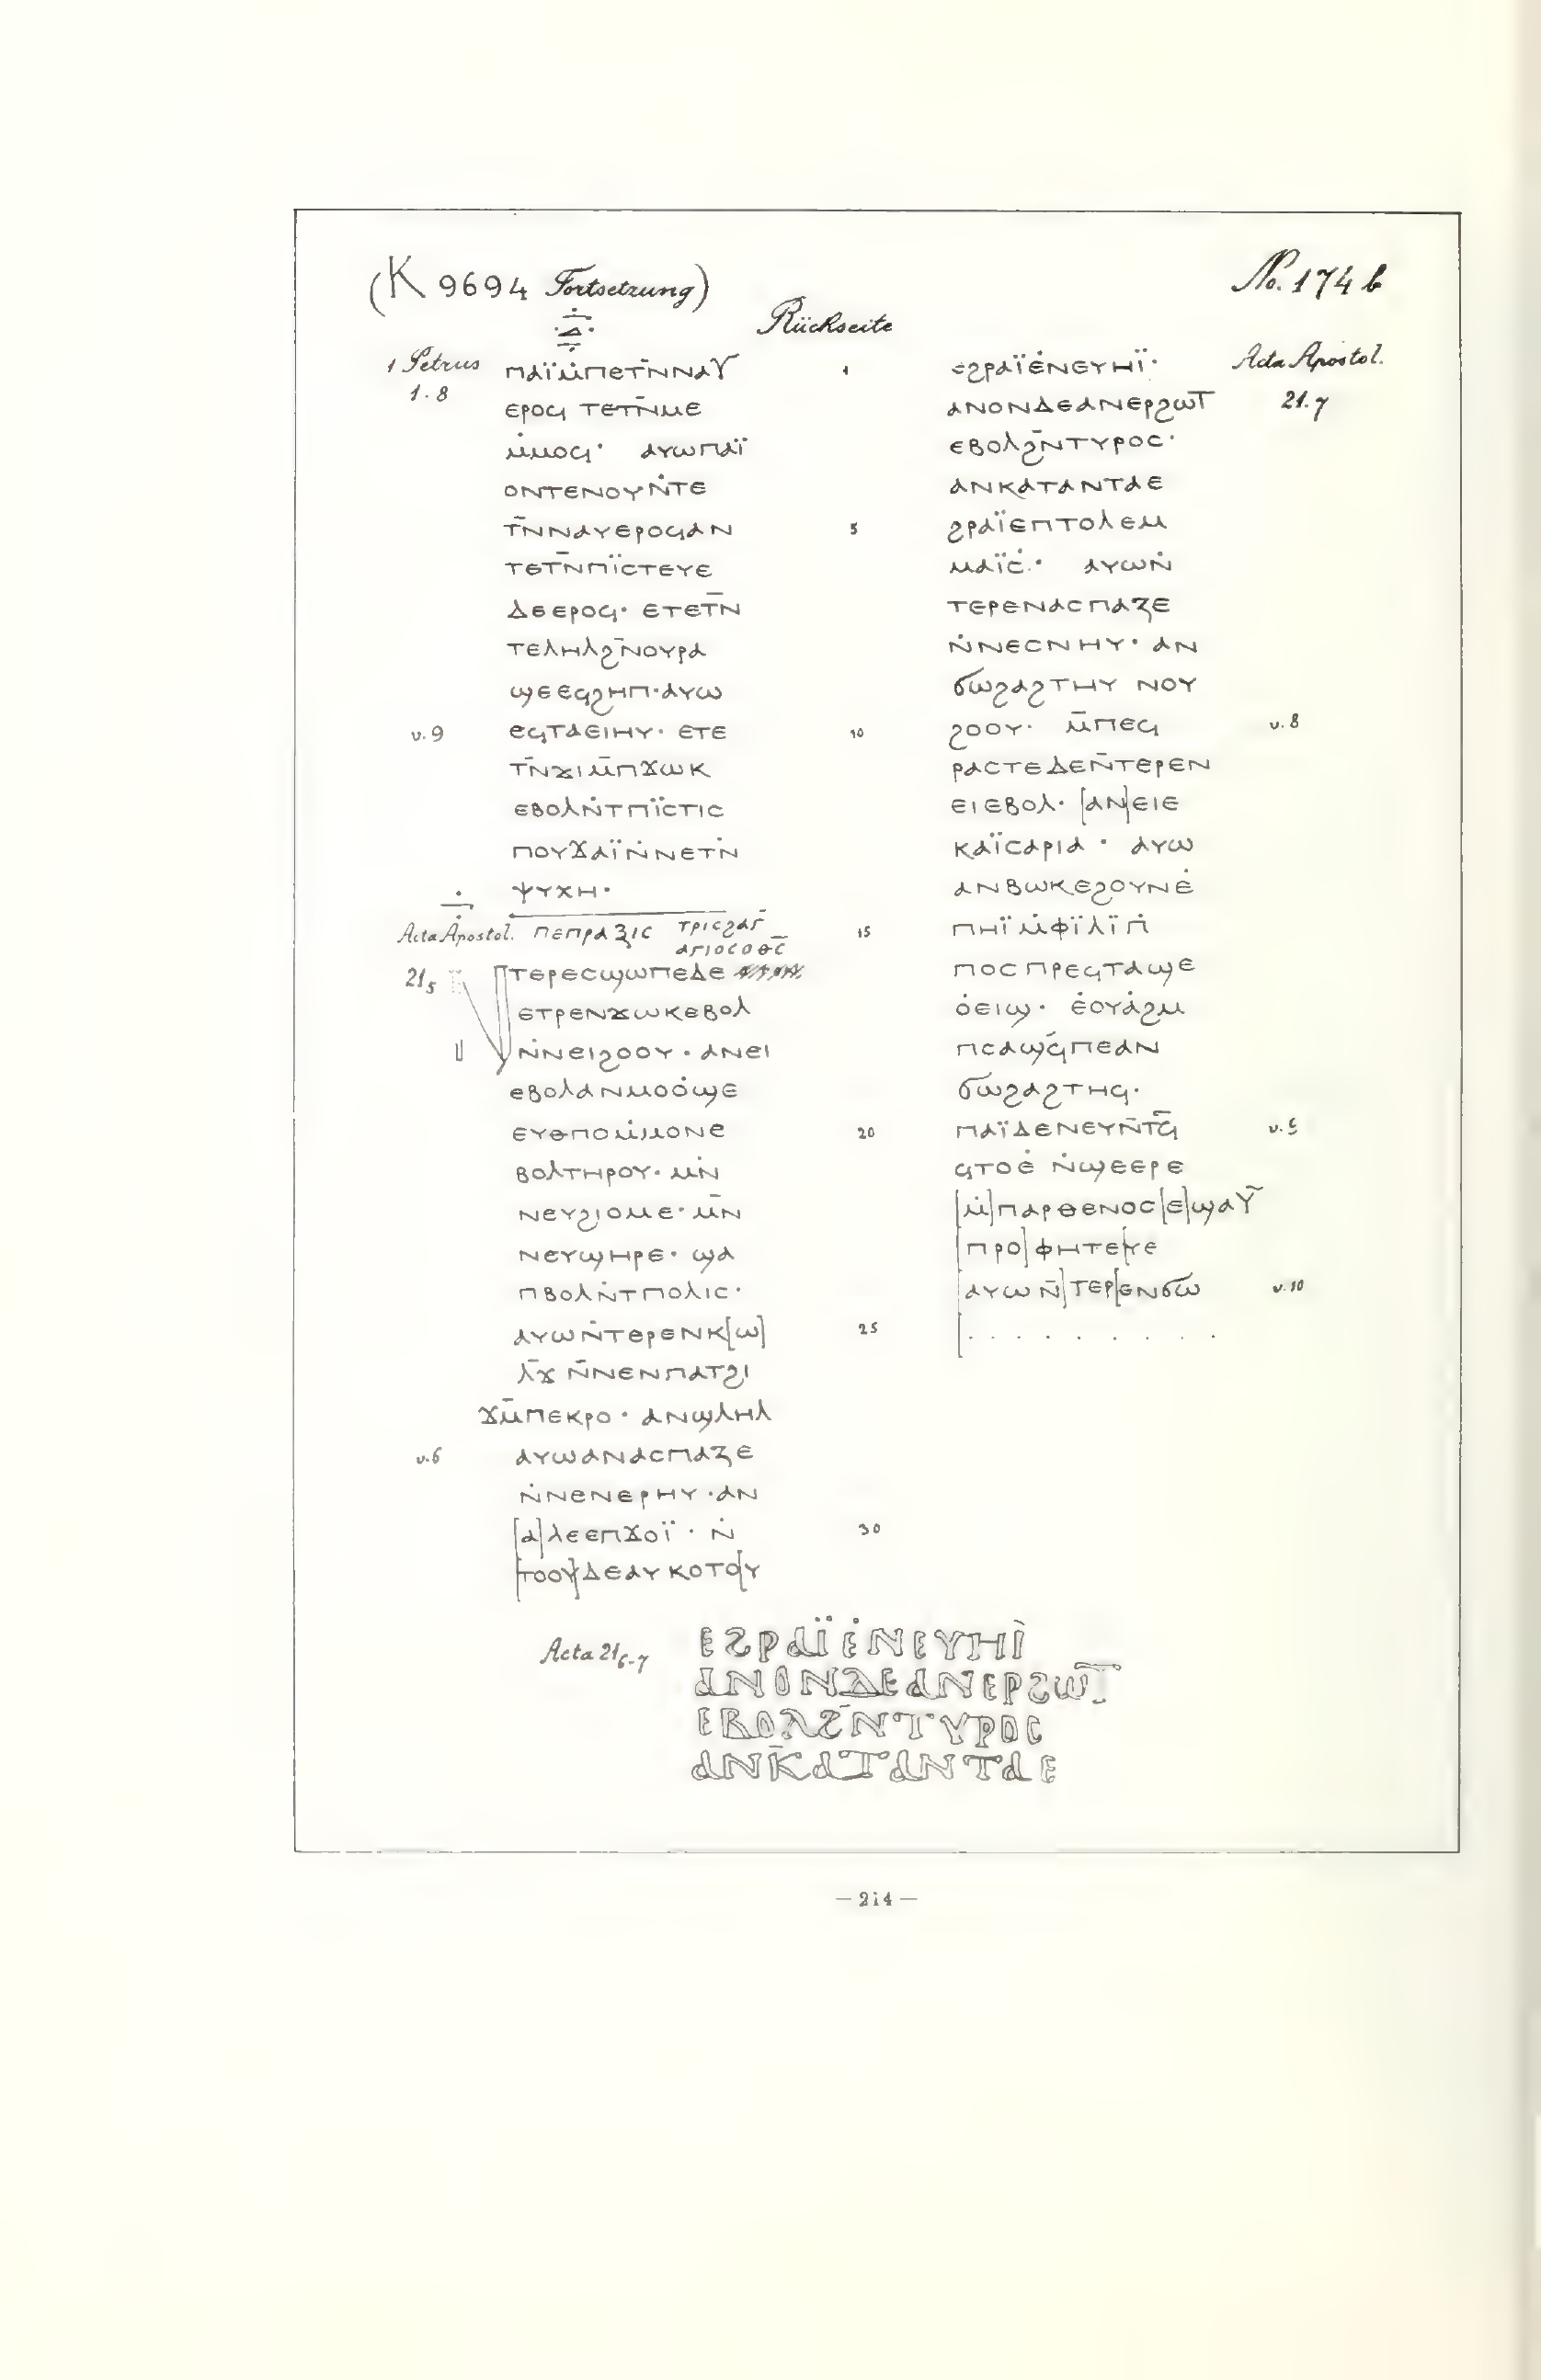 (K 9694 Fortsetzung)
No. 174 b
Rückseite
·ⲇ̄·
1 Petrus ⲡⲁⲓ̈ⲙ̇ⲡⲉⲧⲛ̄ⲛⲁⲩ
1.8 ⲉⲣⲟϥ ⲧⲉⲧⲛ̄ⲙⲉ
ⲙ̇ⲙⲟϥ· ⲁⲩⲱⲡⲁⲓ̈
ⲟⲛⲧⲉⲛⲟⲩⲛ̇ⲧⲉ
ⲧⲛ̄ⲛⲁⲩⲉⲣⲟϥⲁⲛ 5
ⲧⲉⲧⲛ̄ⲡⲓ̈ⲥⲧⲉⲩⲉ
ⲇⲉⲉⲣⲟϥ· ⲉⲧⲉⲧⲛ̄
ⲧⲉⲗⲏⲗϩⲛ̄ⲟⲩⲣⲁ
ϣⲉⲉϥϩⲏⲡ·ⲁⲩⲱ
v.9 ⲉϥⲧⲁⲉⲓⲏⲩ· ⲉⲧⲉ 10
ⲧⲛ̄ϫⲓⲙ̄ⲡϫⲱⲕ
ⲉⲃⲟⲗⲛ̇ⲧⲡⲓ̈ⲥⲧⲓⲥ
ⲡⲟⲩϫⲁⲓ̈ⲛ̇ⲛⲉⲧⲛ̇
ⲯⲩⲭⲏ·
Acta Apostol. ⲡⲉⲡⲣⲁⲝⲓⲥ ⲧⲣⲓⲥϩⲁⲅ̄ 15
ⲁⲅⲓⲟⲥⲟⲑⲥ̄
21₅ ⲧⲉⲣⲉⲥϣⲱⲡⲉⲇⲉ
ⲉⲧⲣⲉⲛϫⲱⲕⲉⲃⲟⲗ
ⲛ̇ⲛⲉⲓϩⲟⲟⲩ·ⲁⲛⲉⲓ
ⲉⲃⲟⲗⲁⲛⲙⲟⲟ̇ϣⲉ
ⲉⲩⲑⲡⲟⲙ̇ⲙⲟⲛⲉ 20
ⲃⲟⲗⲧⲏⲣⲟⲩ· ⲙⲛ̇
ⲛⲉⲩϩⲓⲟⲙⲉ· ⲙⲛ̄
ⲛⲉⲩϣⲏⲣⲉ· ϣⲁ
ⲡⲃⲟⲗⲛ̇ⲧⲡⲟⲗⲓⲥ·
ⲁⲩⲱⲛ̇ⲧⲉⲣⲉⲛⲕ[ⲱ] 25
ⲗ̄ϫ ⲛ̄ⲛⲉⲛⲡⲁⲧϩⲓ
ϫⲙ̄ⲡⲉⲕⲣⲟ· ⲁⲛϣⲗⲏⲗ
v.6 ⲁⲩⲱⲁⲛⲁⲥⲡⲁⲍⲉ
ⲛ̇ⲛⲉⲛⲉⲣⲏⲩ·ⲁⲛ
[ⲁ]ⲗⲉⲉⲡϫⲟⲓ̈· ⲛ̇ 30
[ⲧⲟⲟⲩ]ⲇⲉⲁⲩⲕⲟⲧⲟ[ⲩ
1 ⲉϩⲣⲁⲓ̈ⲉ̇ⲛⲉⲩⲏⲓ̈· Acta Apostol.
ⲁⲛⲟⲛⲇⲉⲁⲛⲉⲣϩⲱⲧ̄ 21.7
ⲉⲃⲟⲗϩⲛ̄ⲧⲩⲣⲟⲥ·
ⲁⲛⲕⲁⲧⲁⲛⲧⲁⲉ
ϩⲣⲁⲓ̈ⲉⲡⲧⲟⲗⲉⲙ
ⲙⲁⲓ̈ⲥ̇· ⲁⲩⲱⲛ̇
ⲧⲉⲣⲉⲛⲁⲥⲡⲁⲍⲉ
ⲛ̇ⲛⲉⲥⲛⲏⲩ· ⲁⲛ
ϭⲱϩⲁϩⲧⲏⲩ ⲛⲟⲩ
ϩⲟⲟⲩ· ⲙ̄ⲡⲉϥ v.8
ⲣⲁⲥⲧⲉⲇⲉⲛ̄ⲧⲉⲣⲉⲛ
ⲉⲓⲉⲃⲟⲗ· [ⲁⲛ]ⲉⲓⲉ
ⲕⲁⲓ̈ⲥⲁⲣⲓⲁ· ⲁⲩⲱ
ⲁⲛⲃⲱⲕⲉϩⲟⲩⲛⲉ̇
ⲡⲏⲓ̈ⲙ̇ⲫⲓ̈ⲗⲓ̈ⲡ̇
ⲡⲟⲥⲡⲣⲉϥⲧⲁϣⲉ
ⲟ̇ⲉⲓϣ· ⲉ̇ⲟⲩⲁ̇ϩⲙ
ⲡⲥⲁϣϥ̇ⲡⲉⲁⲛ
ϭⲱϩⲁϩⲧⲏϥ·
ⲡⲁⲓ̈ⲇⲉⲛⲉⲩⲛ̄ⲧϥ̄
ϥⲧⲟⲉ̇ ⲛ̇ϣⲉⲉⲣⲉ
[ⲙ̇]ⲡⲁⲣⲑⲉⲛⲟⲥ[ⲉ]ϣⲁⲩ̄
[ⲡⲣⲟ]ⲫⲏⲧⲉ[ⲩⲉ
[ⲁⲩⲱⲛ̄]ⲧⲉⲣ[ⲉⲛϭⲱ v.10
[. . . . . . . . .
Acta 21₆₋₇ ⲉϩⲣⲁⲓ̈ⲉ̇ⲛⲉⲩⲏⲓ̀
ⲁⲛⲟⲛⲇⲉⲁⲛⲉⲣϩⲱⲧ̄
ⲉⲃⲟⲗϩⲛ̄ⲧⲩⲣⲟⲥ
ⲁⲛⲕⲁⲧⲁⲛⲧⲁⲉ
— 214 —